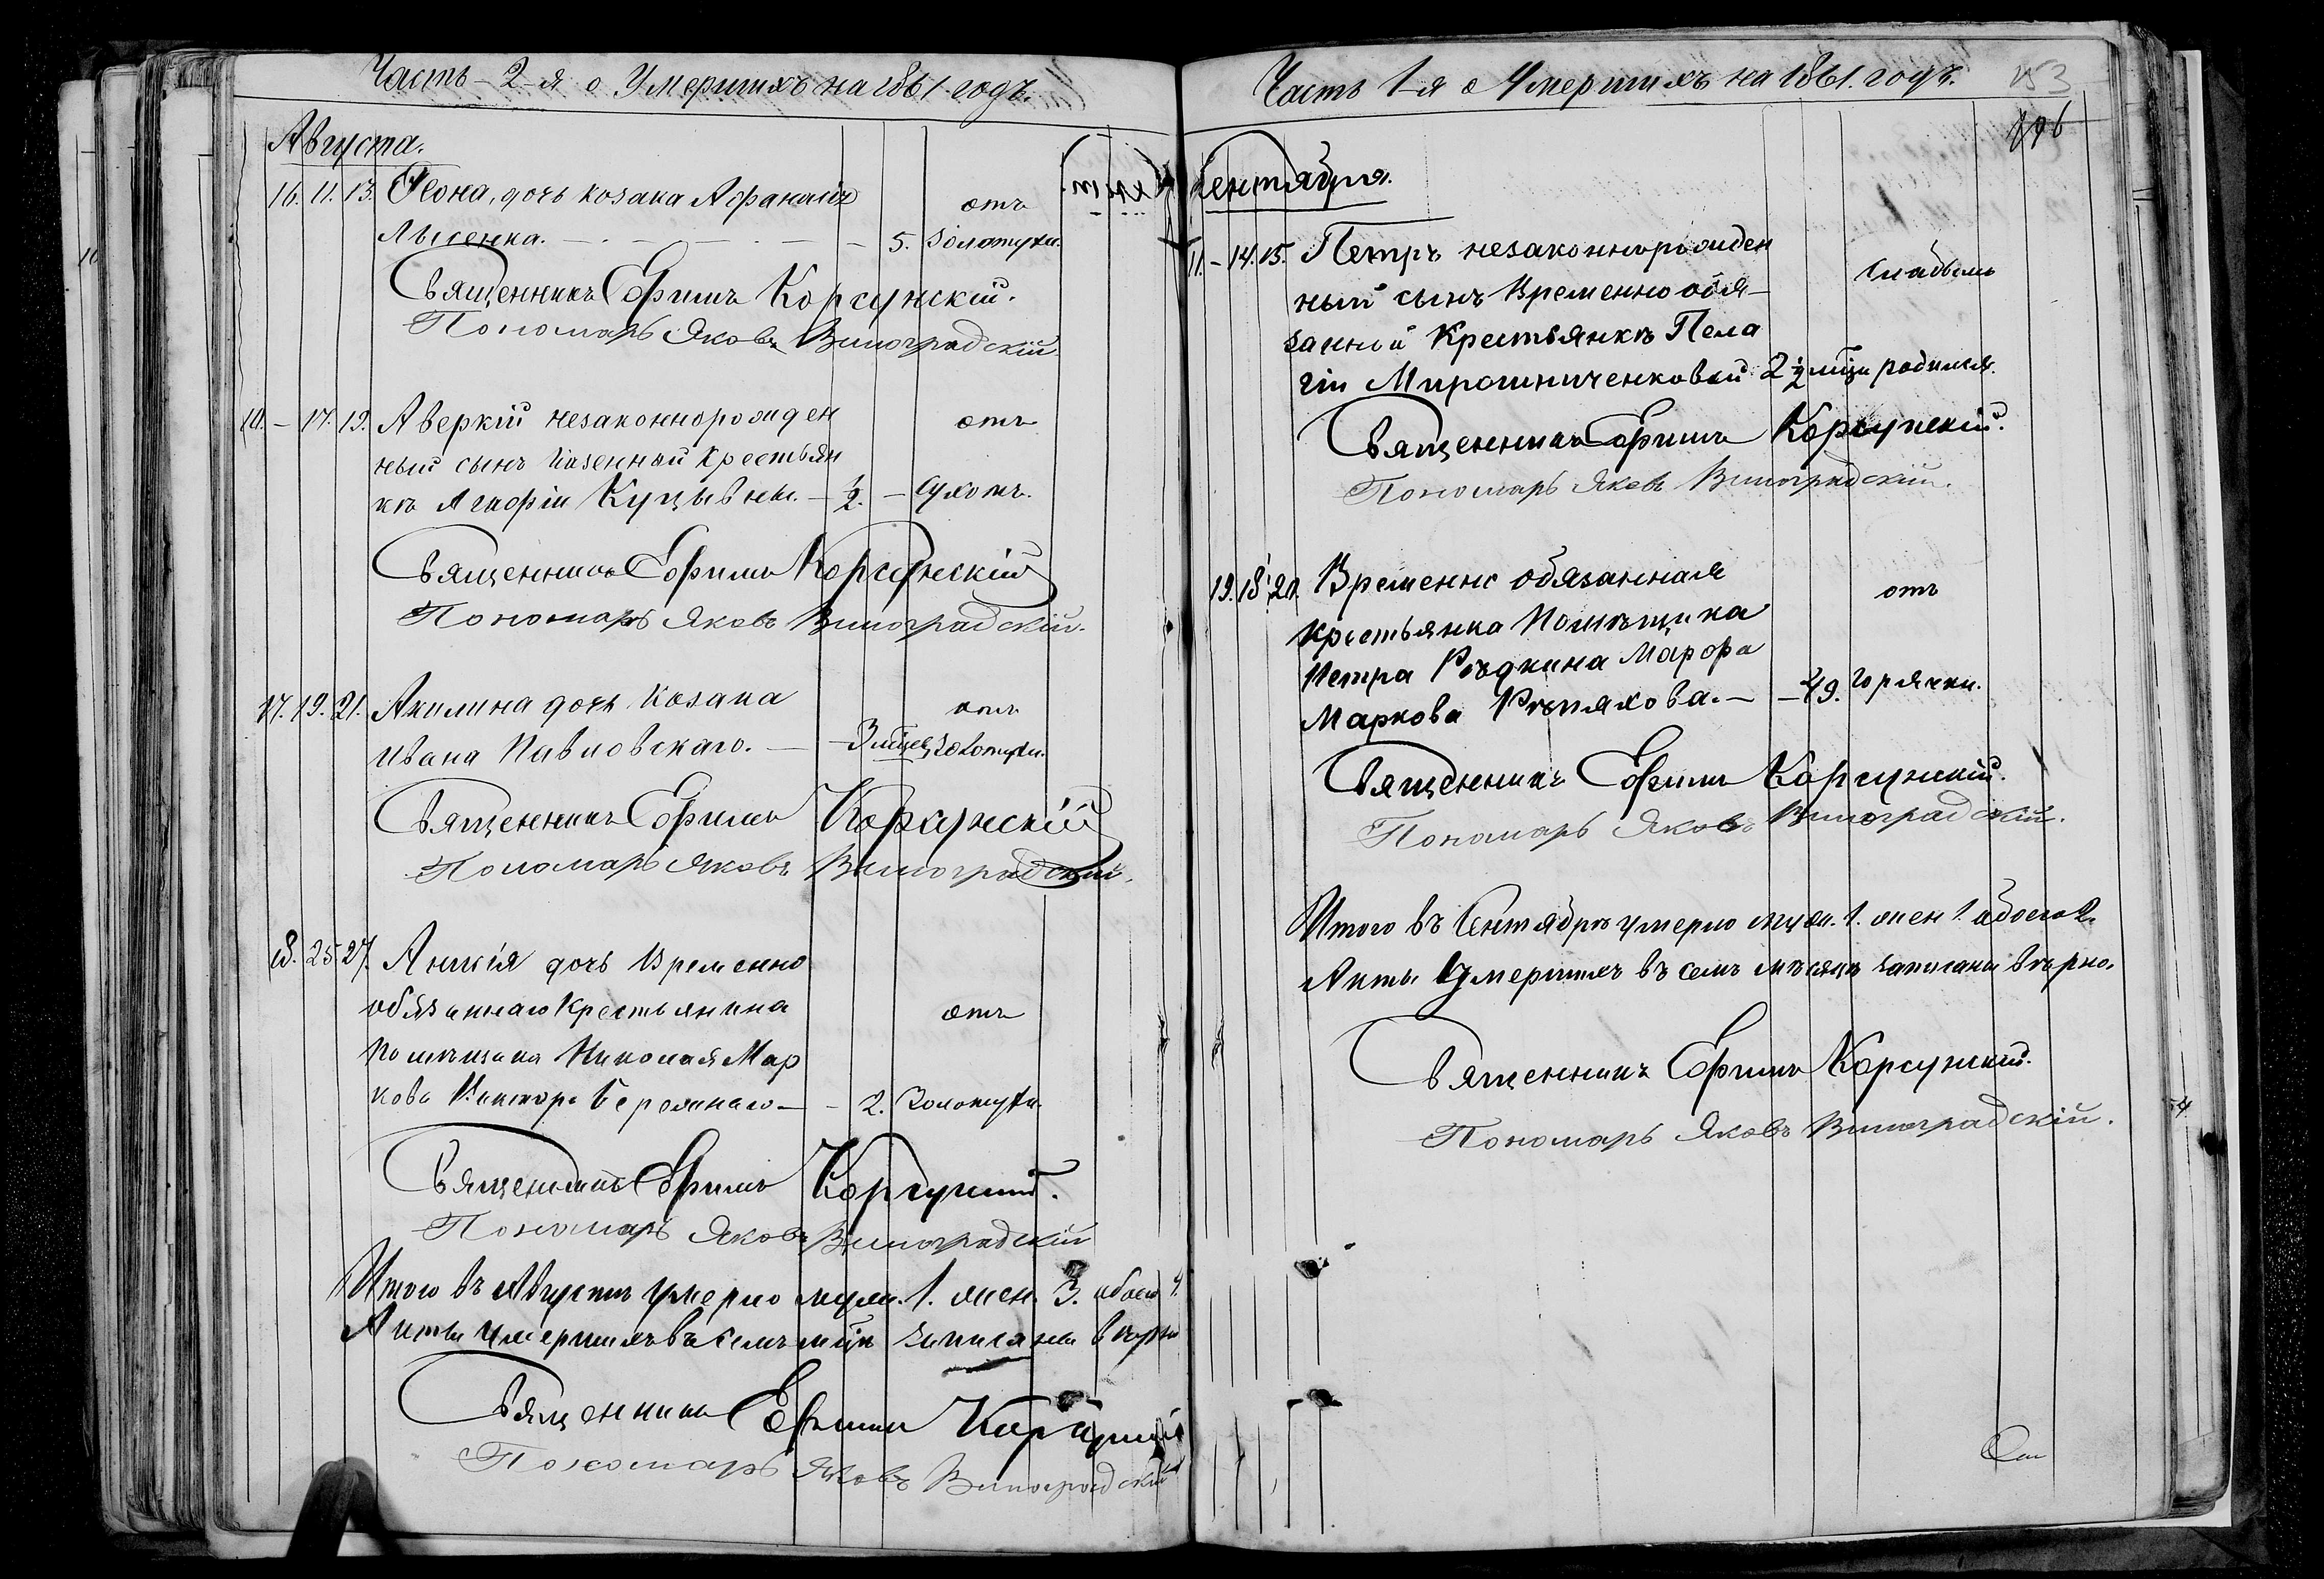 Часть-2-я о Умершихъ на 1861 годъ.
Августа.
16. 11. 13. Феона, дочь козака Афанасія
отъ
Лысенка. — 5. Золотухи.
Священникъ Ефимъ Корсунскій.
Пономарь Яковъ Виноградскій
10. — 17. 19. Аверкій незаконнорожден
отъ
ный сынъ Казенной Крестьян
кѣ Агафіи Куцывны. — ½. — Сухотъ.
Священникъ Ефимъ Корсунскій
Пономарь Яковъ Виноградскій.
17. 19. 21. Акилина дочь Козака
отъ
Ивана Павловскаго. — 3 мѣсц Золотухи.
Священникъ Ефимъ Корсунскій
Пономарь Яковъ Виноградскій.
18. 25. 27. Анисія дочь Временно
обязаннаго Крестьянина
отъ
Помѣщика Николая Мар
кова Виктора Бережнаго — 2. Золотухи.
Священникъ Ефимъ Корсунскій.
Пономарь Яковъ Виноградскій
Итого въ Августѣ умерло муж. 1. жен. 3. обоего 4.
Акты умершихъ въ семъ мцѣ записаны вѣрно
Священникъ Ефимъ Корсунскій
Пономарь Яковъ Виноградскій
Часть 1-я о Умершихъ на 1861. годъ.
153
Сентября.
11. — 14. 15. Петръ незаконнорожден
Слабымъ
ный сынъ Временно обя—
занной Крестьянкѣ Пела
гіи Мирошниченковой 2 ½ мцъ родился.
Священникъ Ефимъ Корсунскій.
Пономарь Яковъ Виноградскій.
19. 18. 20. Временно обязанная
отъ
Крестьянка Помѣщика
Петра Рѣдкина Марфа
Маркова Рѣпяхова. — 49. Горячки.
Священникъ Ефимъ Корсунскій.
Пономарь Яковъ Виноградскій.
Итого въ Сентябрѣ умерло муж. 1. жен 1. обоего 2.
Акты Умершихъ въ семъ мѣсяцѣ записаны вѣрно.
Священникъ Ефимъ Корсунскій.
Пономарь Яковъ Виноградскій.